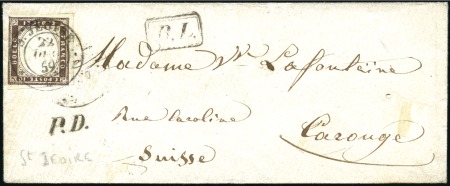 22
59
P.L.
Madame Ve. Lafontaine
P.D.
Rue Caroline
Carouge
Suisse
St JEOIRE